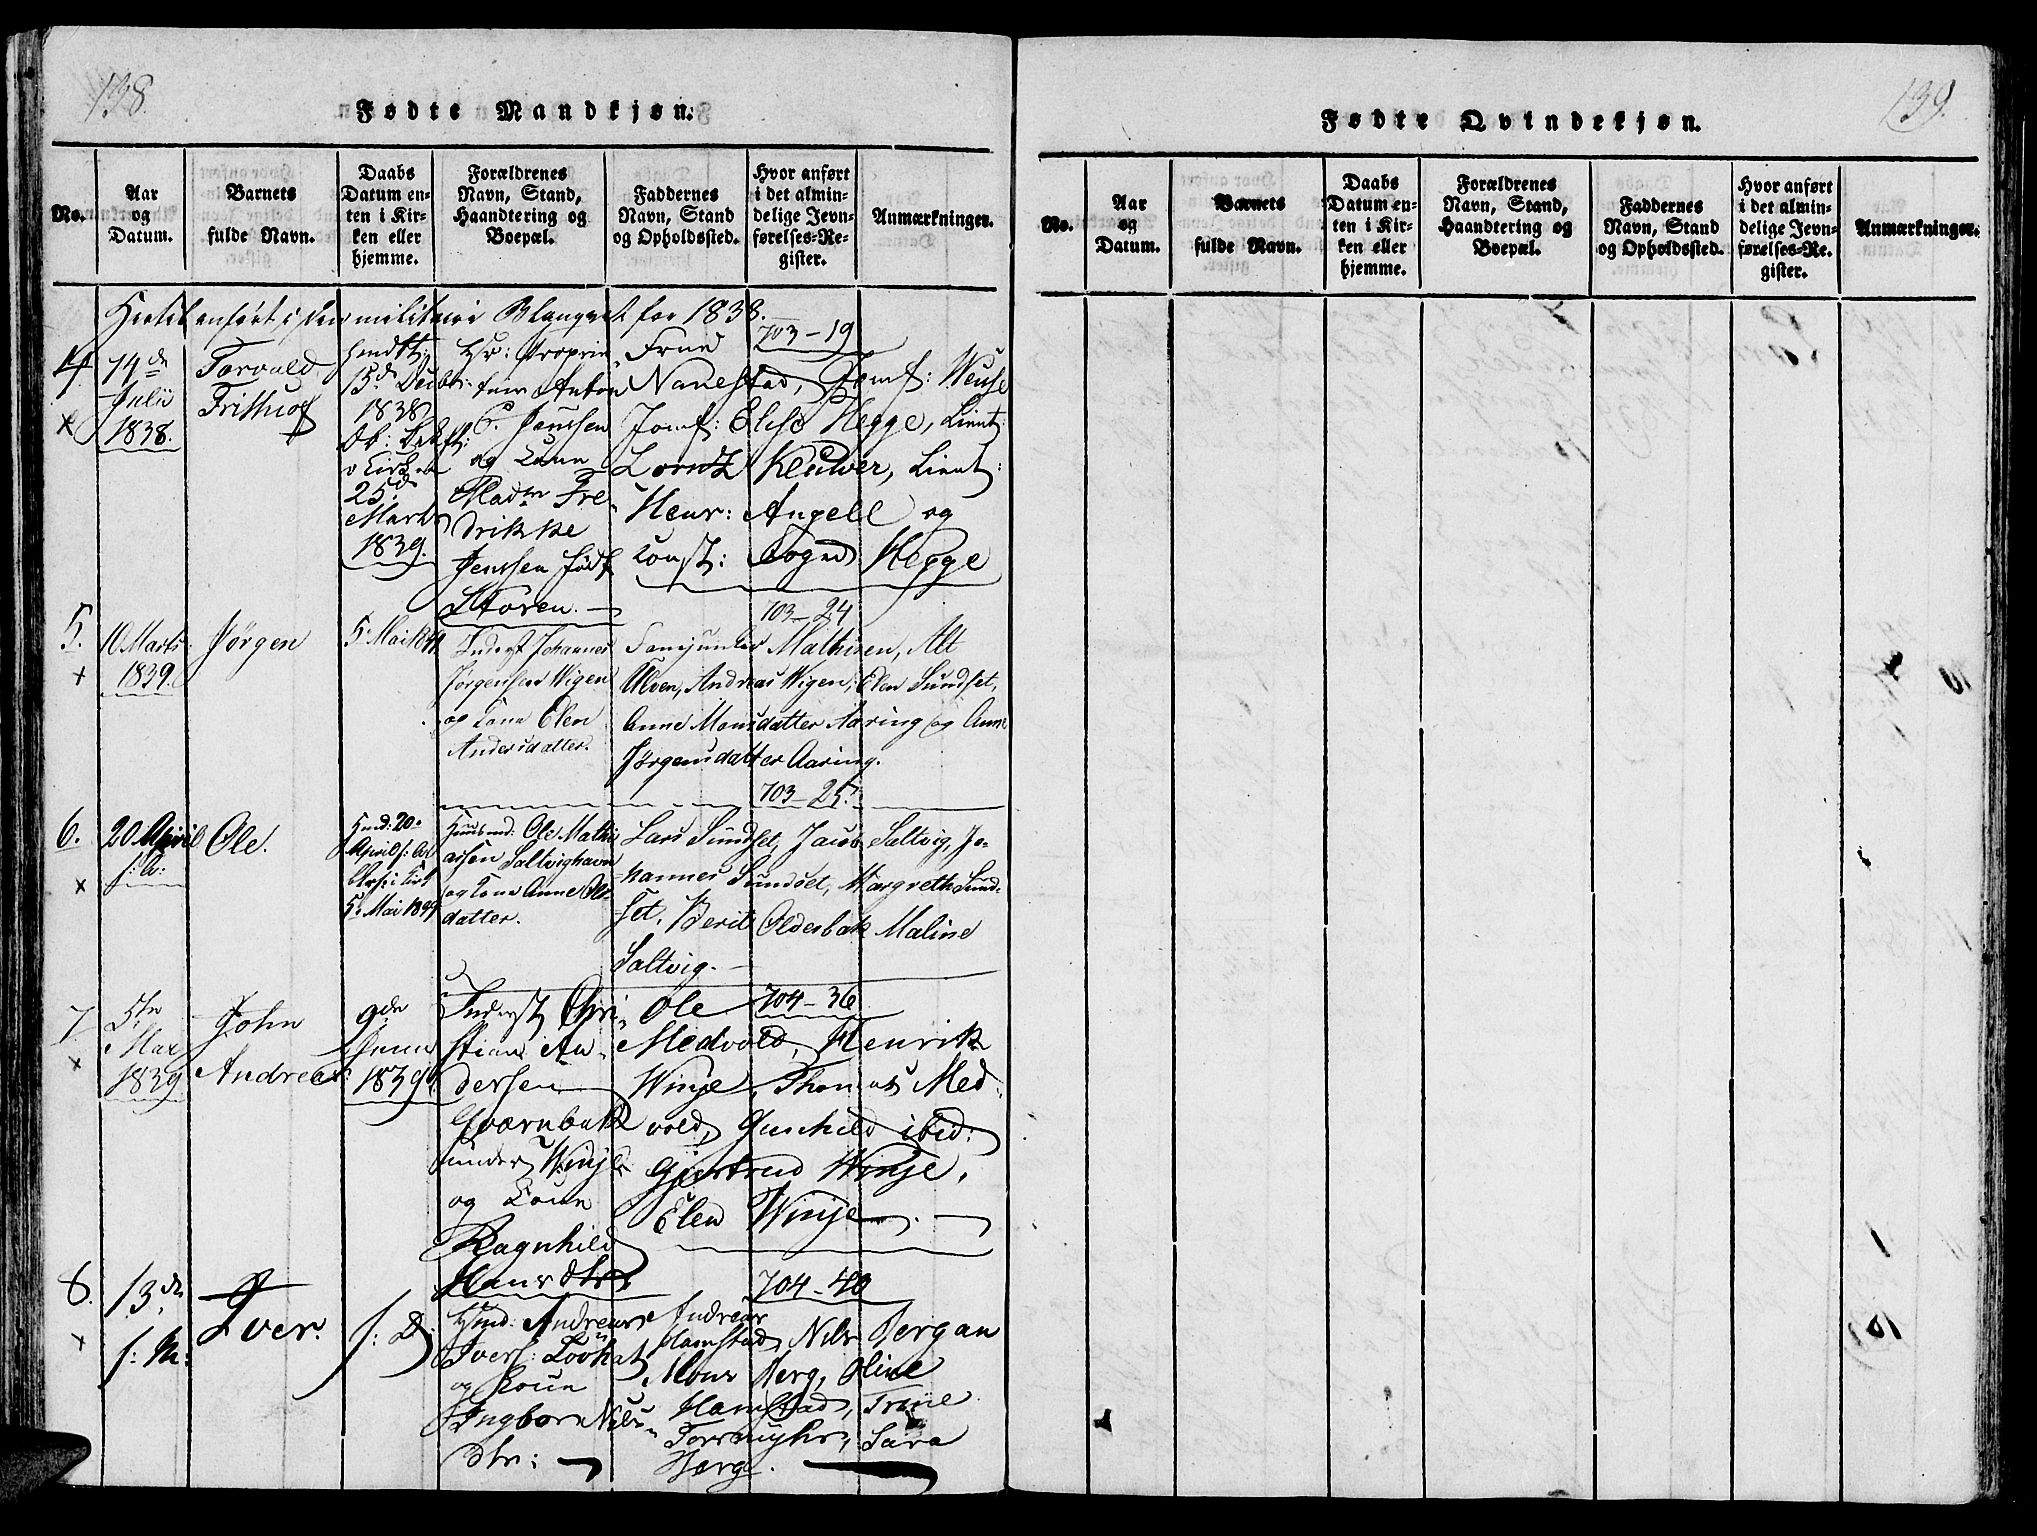 138.
Fødte Mandkjøn.
No.
Aar
og
Datum.
Barnets
fulde Navn.
Daabs
Datum en-
ten i Kir-
ken eller
hjemme.
Forældrenes
Navn, Stand,
Haandtering og
Boepæl.
Faddernes
Navn, Stand
og Opholdssted.
Hvor anført
i det almin-
delige Jevn-
førelses-Re-
gister.
Anmærkninger.
anført i den militaire for 1838.
4.
14de
Julii
1838.
Torvald
Frithiof
1838
25de
Marts
1839.
Hr: Proprie-
tair Anton
C. Jenssen
og Kone
Madm Fre-
drikke
Jenssen født
Storen.
703-19
Frue
Nanestad, Jomf:
Jomf: Elise Hegge, Lieut:
Lorntz Lieut:
Henr: Angell og
Const: Hegge
5.
10 Marts
1839.
Jørgen
5 Mai
Inderst Johannes
Jørgensen Wigen
og Kone Elen
Andersdatter.
703-24
Mathisen,
Ulven, Andreas Wigen, Elen Sundset,
Anne Monsdatter Aaring og Anne
Jørgensdatter Aaring.
6.
20 April
s: A:
Ole.
20
April
5. Mai
Ole Mathi-
assen Saltvighavn
og Kone Anne Ols-
datter.
703-25.
Lars Sundset, Jacob Saltvig, Jo-
hannes Sundset, Margreth Sund-
set, Berit Oldesbak Maline
Saltvig.
7.
5te
Mai
1839
John
Andreas
9de
Juni
1839
Inderst Chri-
stian An-
dersen
Qværnbak
under Winje
og Kone
Ragnhild
Hansdtr
704-36
Ole
Medvold, Henrik
Winje, Thomas Med-
vold, Gunhild ibid:
Gjertrud Winje,
Elen Winje
8.
13de
s: M:
Iver.
s: D:
Hmd: Andreas
Ivers:
og Kone
Ingborr Nils-
dtr:
704-40
Andreas
Hamstad, Nils Bergan
Mons Berg, Oline
Hamstad, Trine
Sara
Berg.
139.
Fødte Qvindekjøn.
No.
Aar
og
Datum.
Barnets
fulde Navn.
Daabs
Datum en-
ten i Kir-
ken eller
hjemme.
Forældrenes
Navn, Stand,
Haandtering og
Boepæl.
Faddernes
Navn, Stand
og Opholdssted.
Hvor anført
i det almin-
delige Jevn-
førelses-Re-
gister.
Anmærkninger.